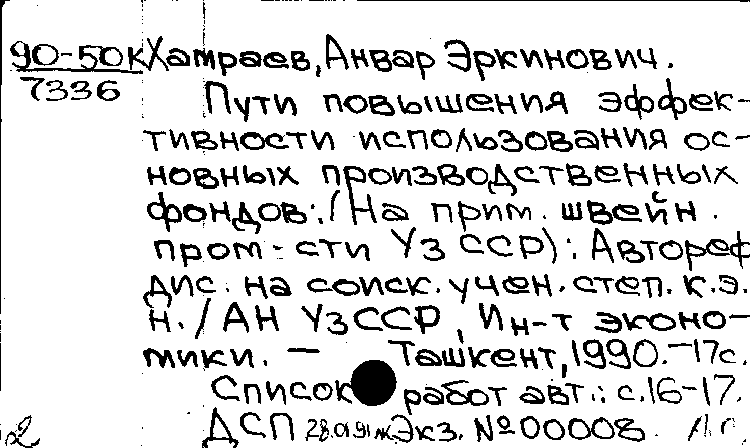 90-50К Хатраев, Анвар Эркинович.
7336
Пути повышения эффек-
тивности использования ос-
новных производственных
фондов: /(На прим. швейн.
пром-сти УзССР): Автореф
дис. на соиск. учен. степ. к.э.
н. / АН УзССР, Ин-т эконо-
мики. — Ташкент, 1990. -17с.
Список работ авт.: с.16-17.
2 ДСП 28.01.91 Экз. №00008.